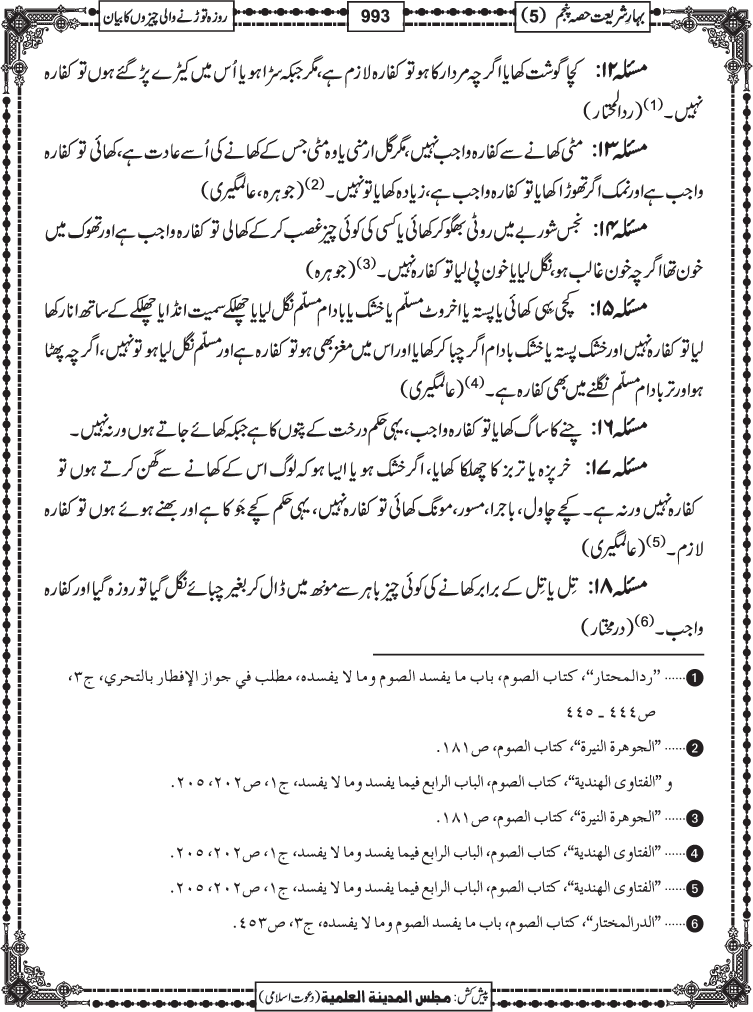 بہارِ شریعت حصہ پنجم (5)
993
روزہ توڑنے والی چیزوں کا بیان
مسئلہ ۱۲: کچا گوشت کھایا اگرچہ مردار کا ہو تو کفارہ لازم ہے، مگر جبکہ سڑا ہو یا اُس میں کیڑے پڑ گئے ہوں تو کفارہ
نہیں۔ (1) (ردالمحتار)
مسئلہ ۱۳: مٹی کھانے سے کفارہ واجب نہیں، مگر گل ارمنی یا وہ مٹی جس کے کھانے کی اُسے عادت ہے، کھائی تو کفارہ
واجب ہے اور نمک اگر تھوڑا کھایا تو کفارہ واجب ہے، زیادہ کھایا تو نہیں۔ (2) (جوہرہ، عالمگیری)
مسئلہ ۱۴: نجس شوربے میں روٹی بھگو کر کھائی یا کسی کی کوئی چیز غصب کر کے کھالی تو کفارہ واجب ہے اور تھوک میں
خون تھا اگرچہ خون غالب ہو، نگل لیا یا خون پی لیا تو کفارہ نہیں۔ (3) (جوہرہ)
مسئلہ ۱۵: کچی بہی کھائی یا پستہ یا اخروٹ مسلّم یا خشک یا بادام مسلّم نگل لیا یا چھلکے سمیت انڈا یا چھلکے کے ساتھ انار کھا
لیا تو کفارہ نہیں اور خشک پستہ یا خشک بادام اگر چبا کر کھایا اور اس میں مغز بھی ہو تو کفارہ ہے اور مسلّم نگل لیا ہو تو نہیں، اگرچہ پھٹا
ہو اور تر بادام مسلّم نگلنے میں بھی کفارہ ہے۔ (4) (عالمگیری)
مسئلہ ۱۶: چنے کا ساگ کھایا تو کفارہ واجب، یہی حکم درخت کے پتوں کا ہے جبکہ کھائے جاتے ہوں ورنہ نہیں۔
مسئلہ ۱۷: خربزہ یا تربز کا چھلکا کھایا، اگر خشک ہو یا ایسا ہو کہ لوگ اس کے کھانے سے گھن کرتے ہوں تو
کفارہ نہیں ورنہ ہے۔ کچے چاول، باجرا، مسور، مونگ کھائی تو کفارہ نہیں، یہی حکم کچے جَو کا ہے اور بھنے ہوئے ہوں تو کفارہ
لازم۔ (5) (عالمگیری)
مسئلہ ۱۸: تِل یا تِل کے برابر کھانے کی کوئی چیز باہر سے مونھ میں ڈال کر بغیر چبائے نگل گیا تو روزہ گیا اور کفارہ
واجب۔ (6) (درمختار)
1 ...... ”ردالمحتار“، کتاب الصوم، باب ما یفسد الصوم وما لا یفسدہ، مطلب في جواز الإفطار بالتحري، ج۳،
ص٤٤٤ ـ ٤٤٥
2 ...... ”الجوهرة النيرة“، کتاب الصوم، ص١٨١.
و ”الفتاوی الهندية“، کتاب الصوم، الباب الرابع فیما یفسد وما لا یفسد، ج١، ص٢٠٢، ٢٠٥.
3 ...... ”الجوهرة النيرة“، کتاب الصوم، ص١٨١.
4 ...... ”الفتاوی الهندية“، کتاب الصوم، الباب الرابع فیما یفسد وما لا یفسد، ج١، ص٢٠٢، ٢٠٥.
5 ...... ”الفتاوی الهندية“، کتاب الصوم، الباب الرابع فیما یفسد وما لا یفسد، ج١، ص٢٠٢، ٢٠٥.
6 ...... ”الدرالمختار“، کتاب الصوم، باب ما یفسد الصوم وما لا یفسدہ، ج٣، ص٤٥٣.
پیش کش: مجلس المدينة العلمية (دعوت اسلامی)